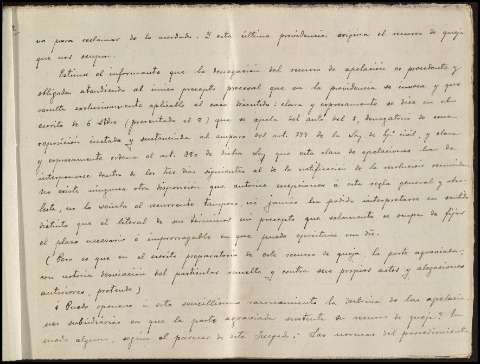 va para reclamar de lo acordado. Y esta última providencia origina el recurso de queja
que nos ocupa.
Estima el informante que la denegación del recurso de apelación es procedente y
obligada atendiendo al único precepto procesal que en la providencia se invoca y que
resulta exclusivamente aplicable al caso discutido: clara y expresamente se dice en el
escrito de 6 Dbre (presentado el 7) que se apela del auto del 1, denegatorio de una
reposición instada y sustanciada al amparo del art. 377 de la Ley de Ej. civil, y clara
y expresamente ordena el art. 380 de dicha Ley que esta clase de apelaciones han de
interponerse dentro de los tres días siguientes al de la notificación de la resolución recurrida.
No existe ninguna otra disposición que autorice excepciones á esta regla general y abso-
luta, no la señala el recurrente tampoco, ni jamás ha podido interpretarse en sentido
distinto que el literal de sus términos un precepto que solamente se ocupa de fijar
el plazo necesario é improrrogable en que puede ejercitarse un dro.
(Pero es que en el escrito preparatorio de este recurso de queja, la parte agraviada,
con notoria desviación del particular resuelto y contra sus propios actos y alegaciones
anteriores, pretende)
¿Puede oponerse a este sencillísimo razonamiento la doctrina de las apelacio-
nes subsidiarias en que la parte agraviada sustenta su recurso de queja? En
modo alguno, según el parecer de este Juzgado. Las normas del procedimiento